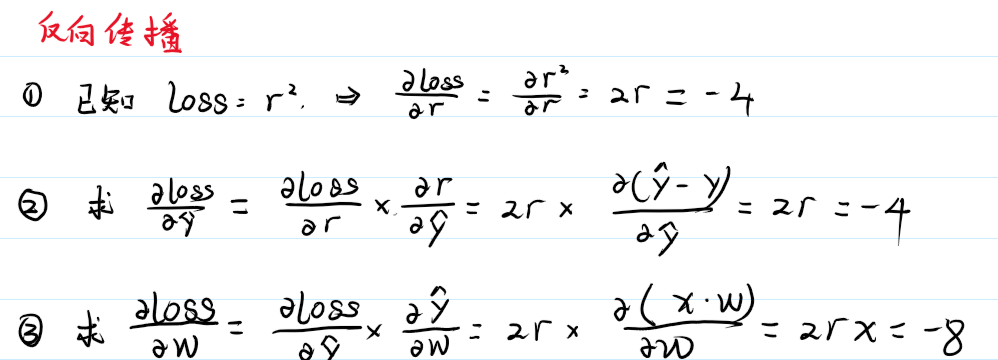 反向传播
① 已知 loss = r². ⇒ ∂loss/∂r = ∂r²/∂r = 2r = -4
② 求 ∂loss/∂ŷ = ∂loss/∂r × ∂r/∂ŷ = 2r × ∂(ŷ - y)/∂ŷ = 2r = -4
③ 求 ∂loss/∂w = ∂loss/∂ŷ × ∂ŷ/∂w = 2r × ∂(x·w)/∂w = 2rx = -8